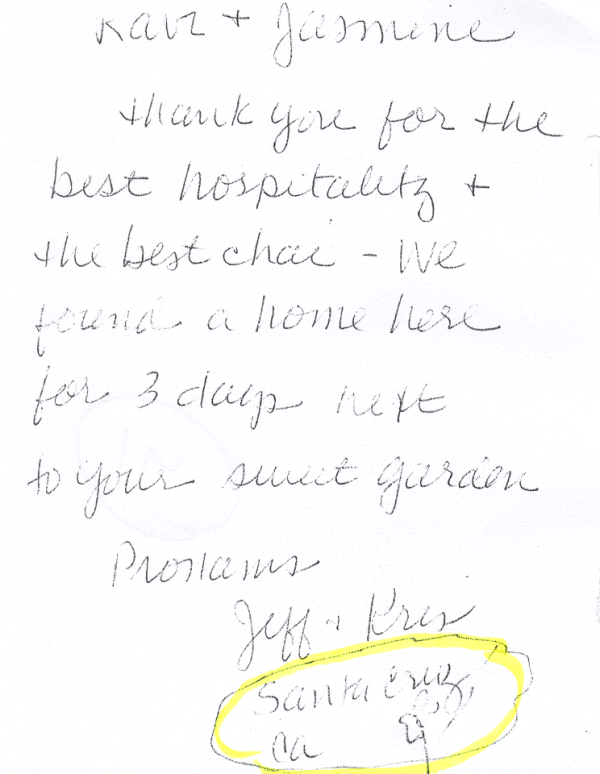 Ravi + Jasmine
thank you for the
best hospitality +
the best chai - We
found a home here
for 3 days next
to your sweet garden
Pronams
Jeff + Kris
Santa Cruz,
Ca